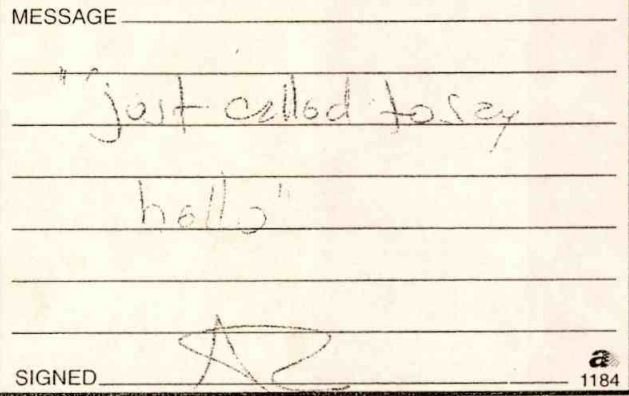 MESSAGE
"just called to say
hello"
SIGNED
a
1184